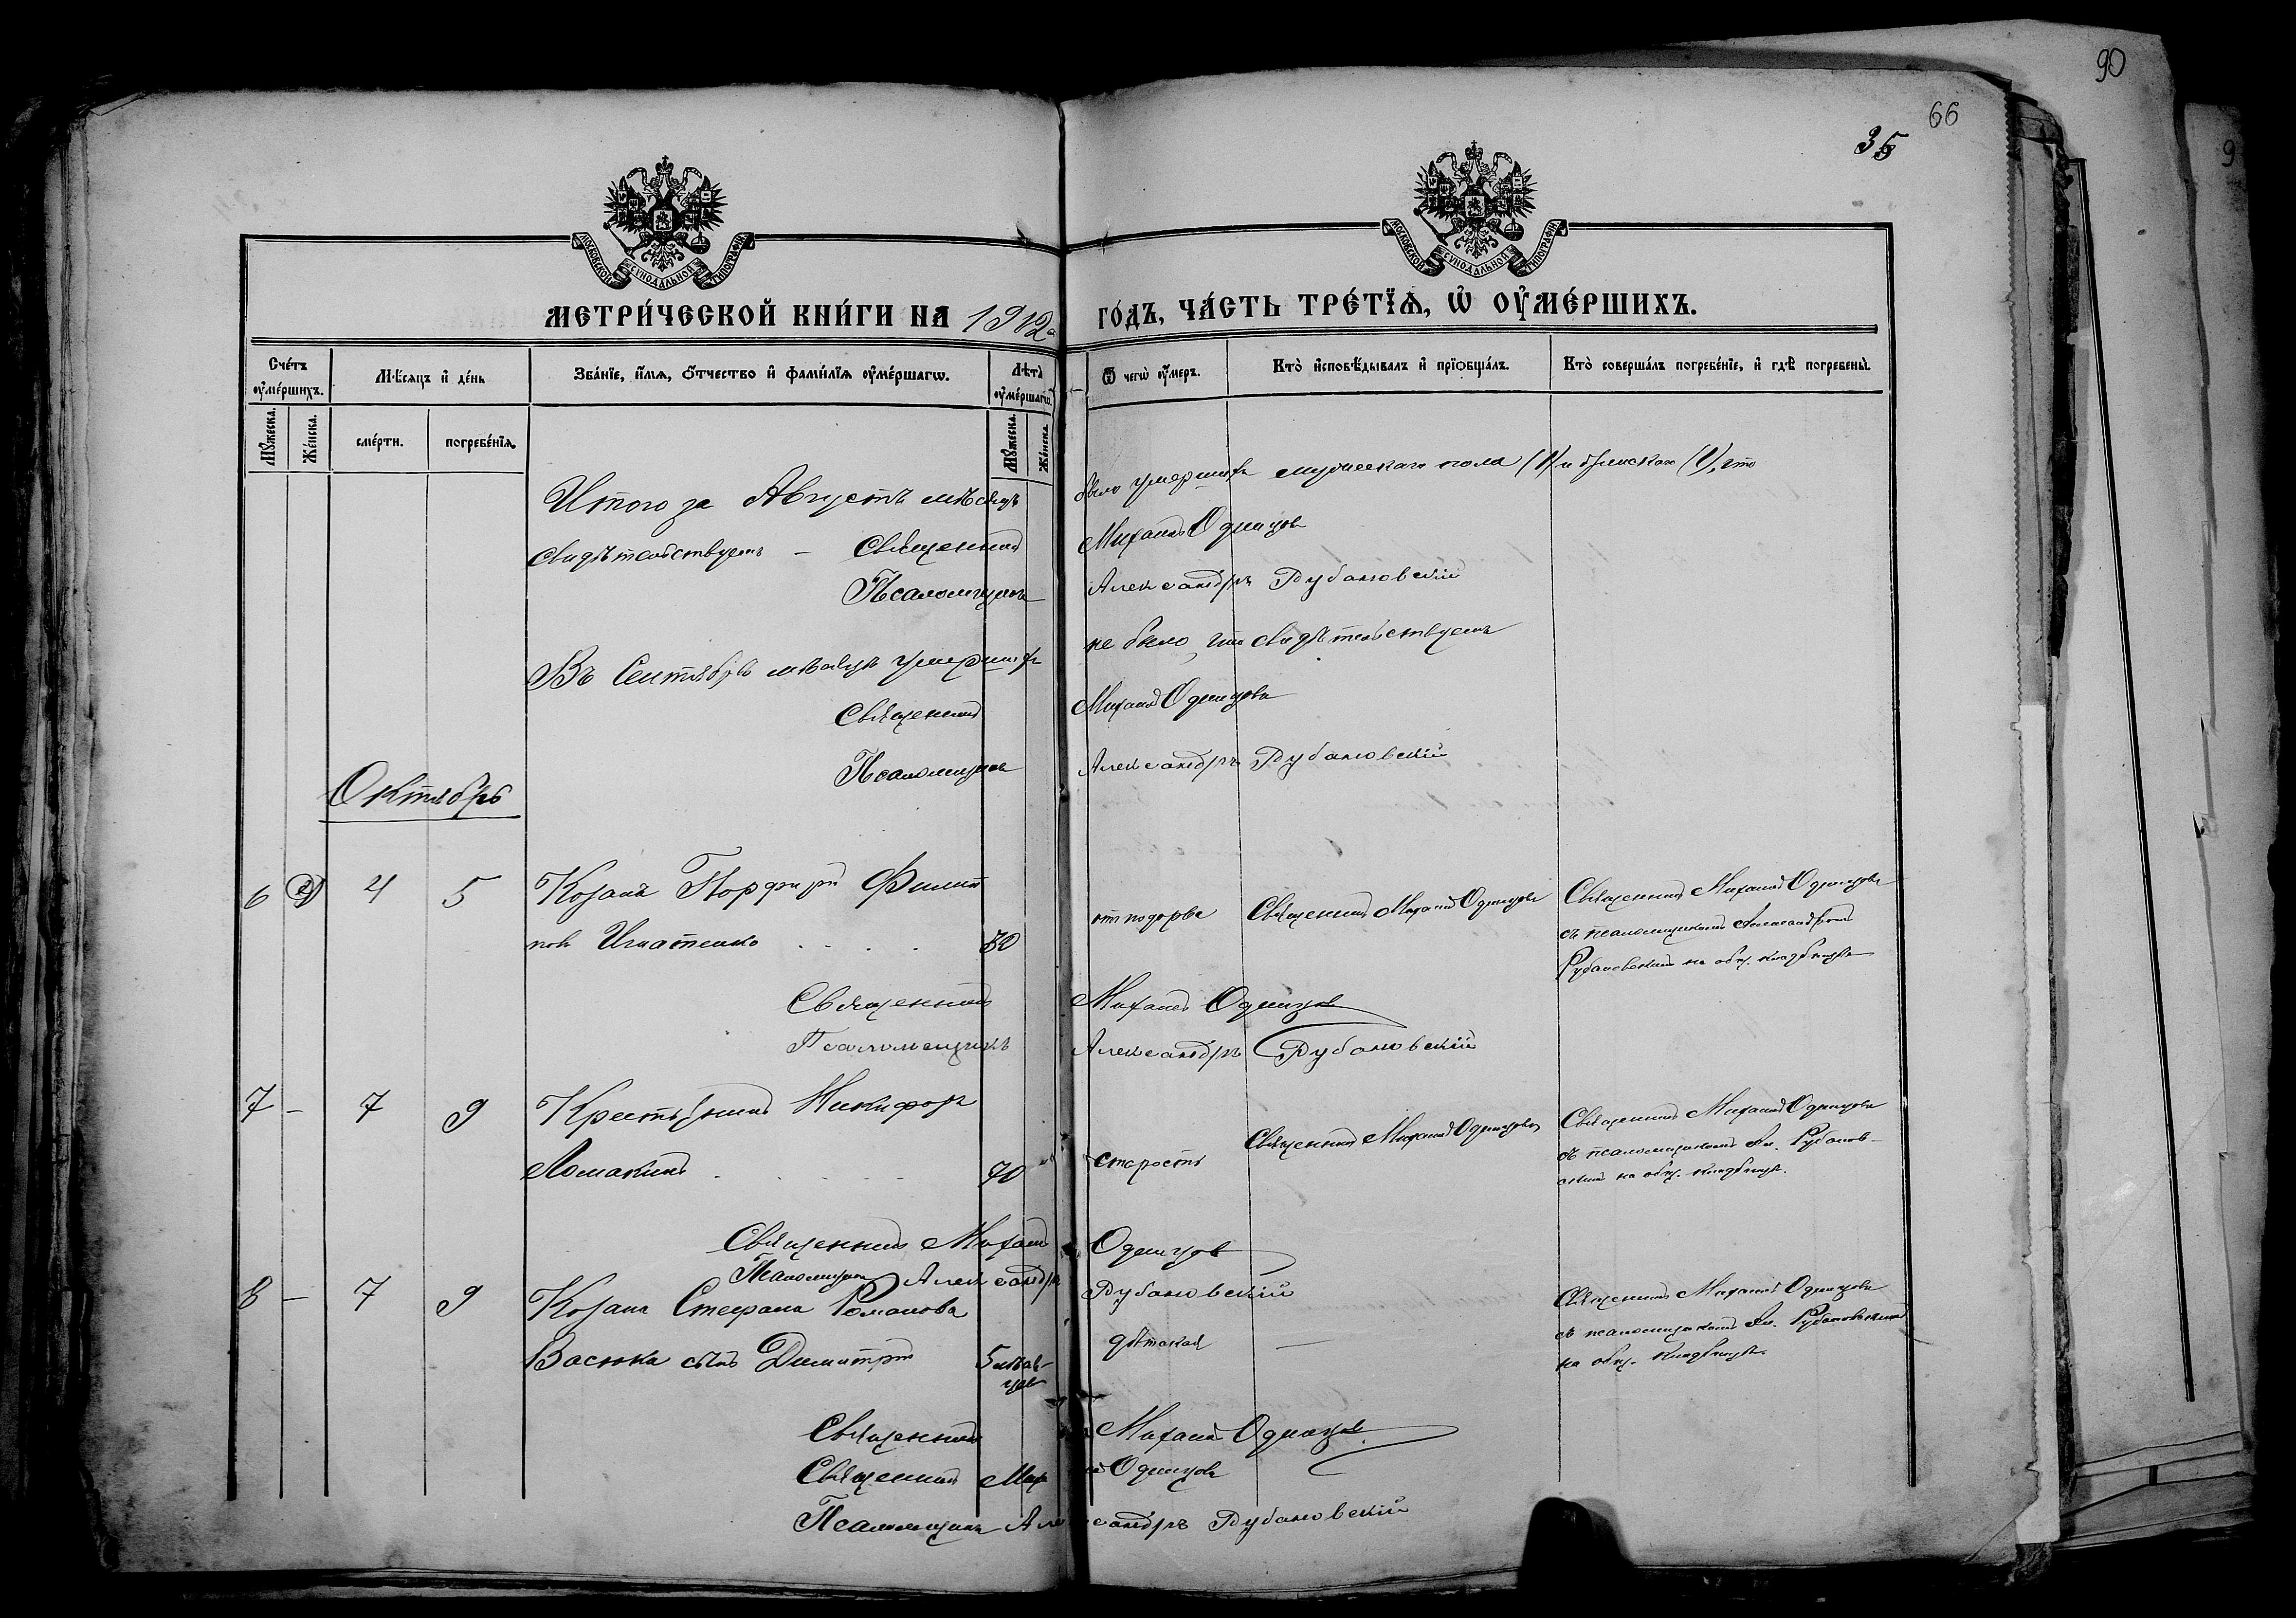 90
66
35
9
МОСКОВСКОЙ СѴНОДАЛЬНОЙ ТИПОГРАФІИ
МОСКОВСКОЙ СѴНОДАЛЬНОЙ ТИПОГРАФІИ
МЕТРИ́ЧЕСКОЙ КНИ́ГИ НА 1912 го́дъ, ча́сть тре́тїѧ, ѡ҆ оу҆ме́ршихъ.
Сче́тъ оу҆ме́ршихъ.
Мѣ́сѧцъ и҆ де́нь
Зва́нїе, и҆́мѧ, ѻ҆́тчество и҆ фами́лїѧ оу҆ме́ршагѡ.
Лѣ́та оу҆ме́ршагѡ.
Ѿ чегѡ̀ оу҆́меръ.
Кто̀ и҆сповѣ́дывалъ и҆ прїобща́лъ.
Кто̀ соверша́лъ погребе́нїе, и҆ гдѣ̀ погребены̀.
Мꙋ́жеска.
Же́нска.
сме́рти.
погребе́нїѧ.
Мꙋ́жеска.
Же́нска.
Итого за Августъ мѣсяцъ было умершихъ мужескаго пола (1) и женскаго (1), что
свидѣтельствуемъ – Священникъ Михаилъ Одинцовъ
Псаломщикъ Александръ Рубановскій
Въ Сентябрѣ мѣсяцѣ умершихъ не было, что свидѣтельствуемъ
Священникъ Михаилъ Одинцовъ
Псаломщикъ Александръ Рубановскій
Октябрь
6 4 5 Козакъ Порфирій Филип
повъ Игнатенко 30
Священникъ Михаилъ Одинцовъ
Священникъ Михаилъ Одинцовъ
съ псаломщикомъ Александромъ
Рубановскимъ на общ. кладбищѣ
Священникъ Михаилъ Одинцовъ
Псаломщикъ Александръ Рубановскій
7 – 7 9 Крестьянинъ Никифоръ
Ломакинъ 70 старость
Священникъ Михаилъ Одинцовъ
Священникъ Михаилъ Одинцовъ
съ псаломщикомъ Ал. Рубанов-
скимъ на общ. кладбищѣ.
Священникъ Михаилъ Одинцовъ
Псаломщикъ Александръ Рубановскій
8 – 7 9 Козака Стефана Романова
Васюка сынъ Димитрій 5 мѣся-
цевъ
дѣтская —
Священникъ Михаилъ Одинцовъ
съ псаломщикомъ Ал. Рубановскимъ
на общ. кладбищѣ.
Священникъ Михаилъ Одинцовъ
Священникъ Михаилъ Одинцовъ
Псаломщикъ Александръ Рубановскій